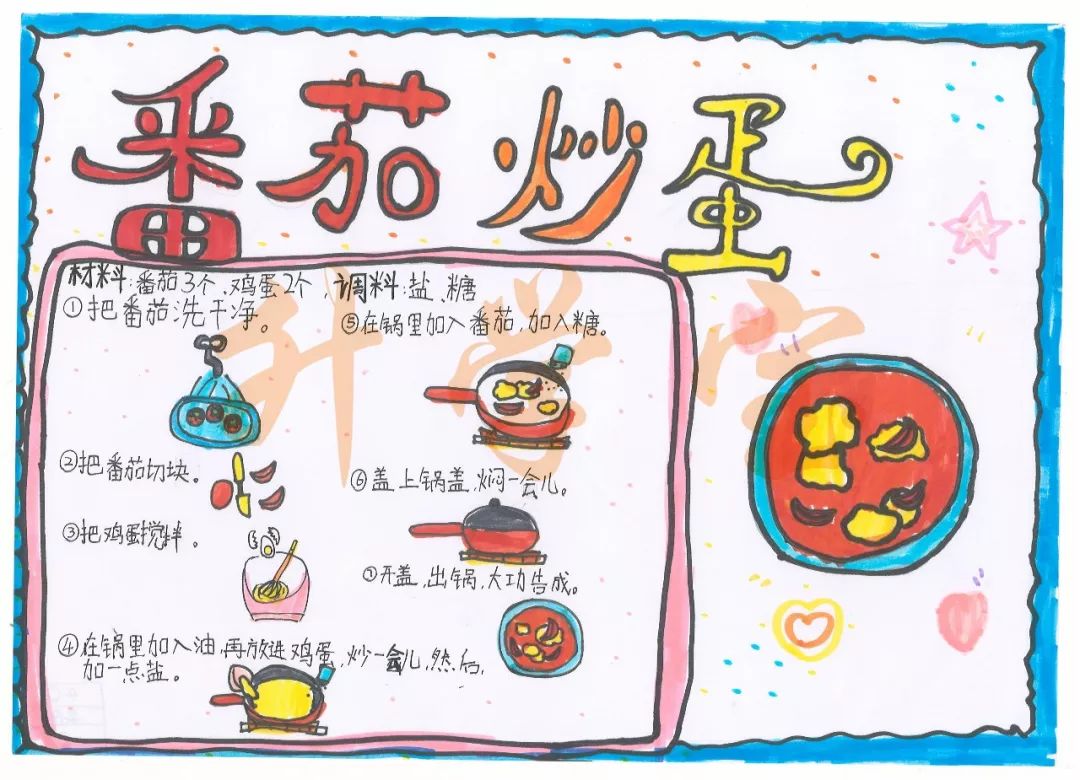 番茄炒蛋
材料:番茄3个、鸡蛋2个,调料:盐、糖
①把番茄洗干净。
②把番茄切块。
③把鸡蛋搅拌。
④在锅里加入油,再放进鸡蛋,炒一会儿,然后,
加一点盐。
⑤在锅里加入番茄,加入糖。
⑥盖上锅盖,焖一会儿。
⑦开盖,出锅,大功告成。
升学宝